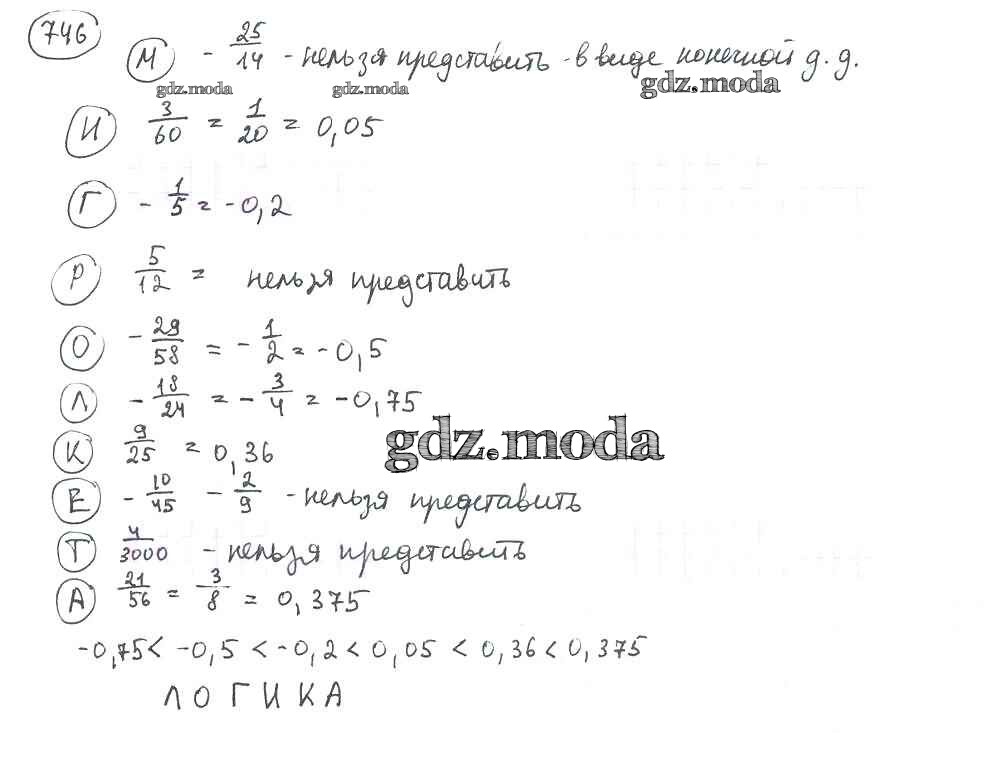 746
М -25/14 - нельзя представить в виде конечной д.д.
gdz.moda gdz.moda gdz.moda
И 3/60 = 1/20 = 0,05
Г -1/5 = -0,2
Р 5/12 = нельзя представить
О -29/58 = -1/2 = -0,5
Л -18/24 = -3/4 = -0,75
gdz.moda
К 9/25 = 0,36
Е -10/45 -2/9 - нельзя представить
Т 4/3000 - нельзя представить
А 21/56 = 3/8 = 0,375
-0,75 < -0,5 < -0,2 < 0,05 < 0,36 < 0,375
Л О Г И К А